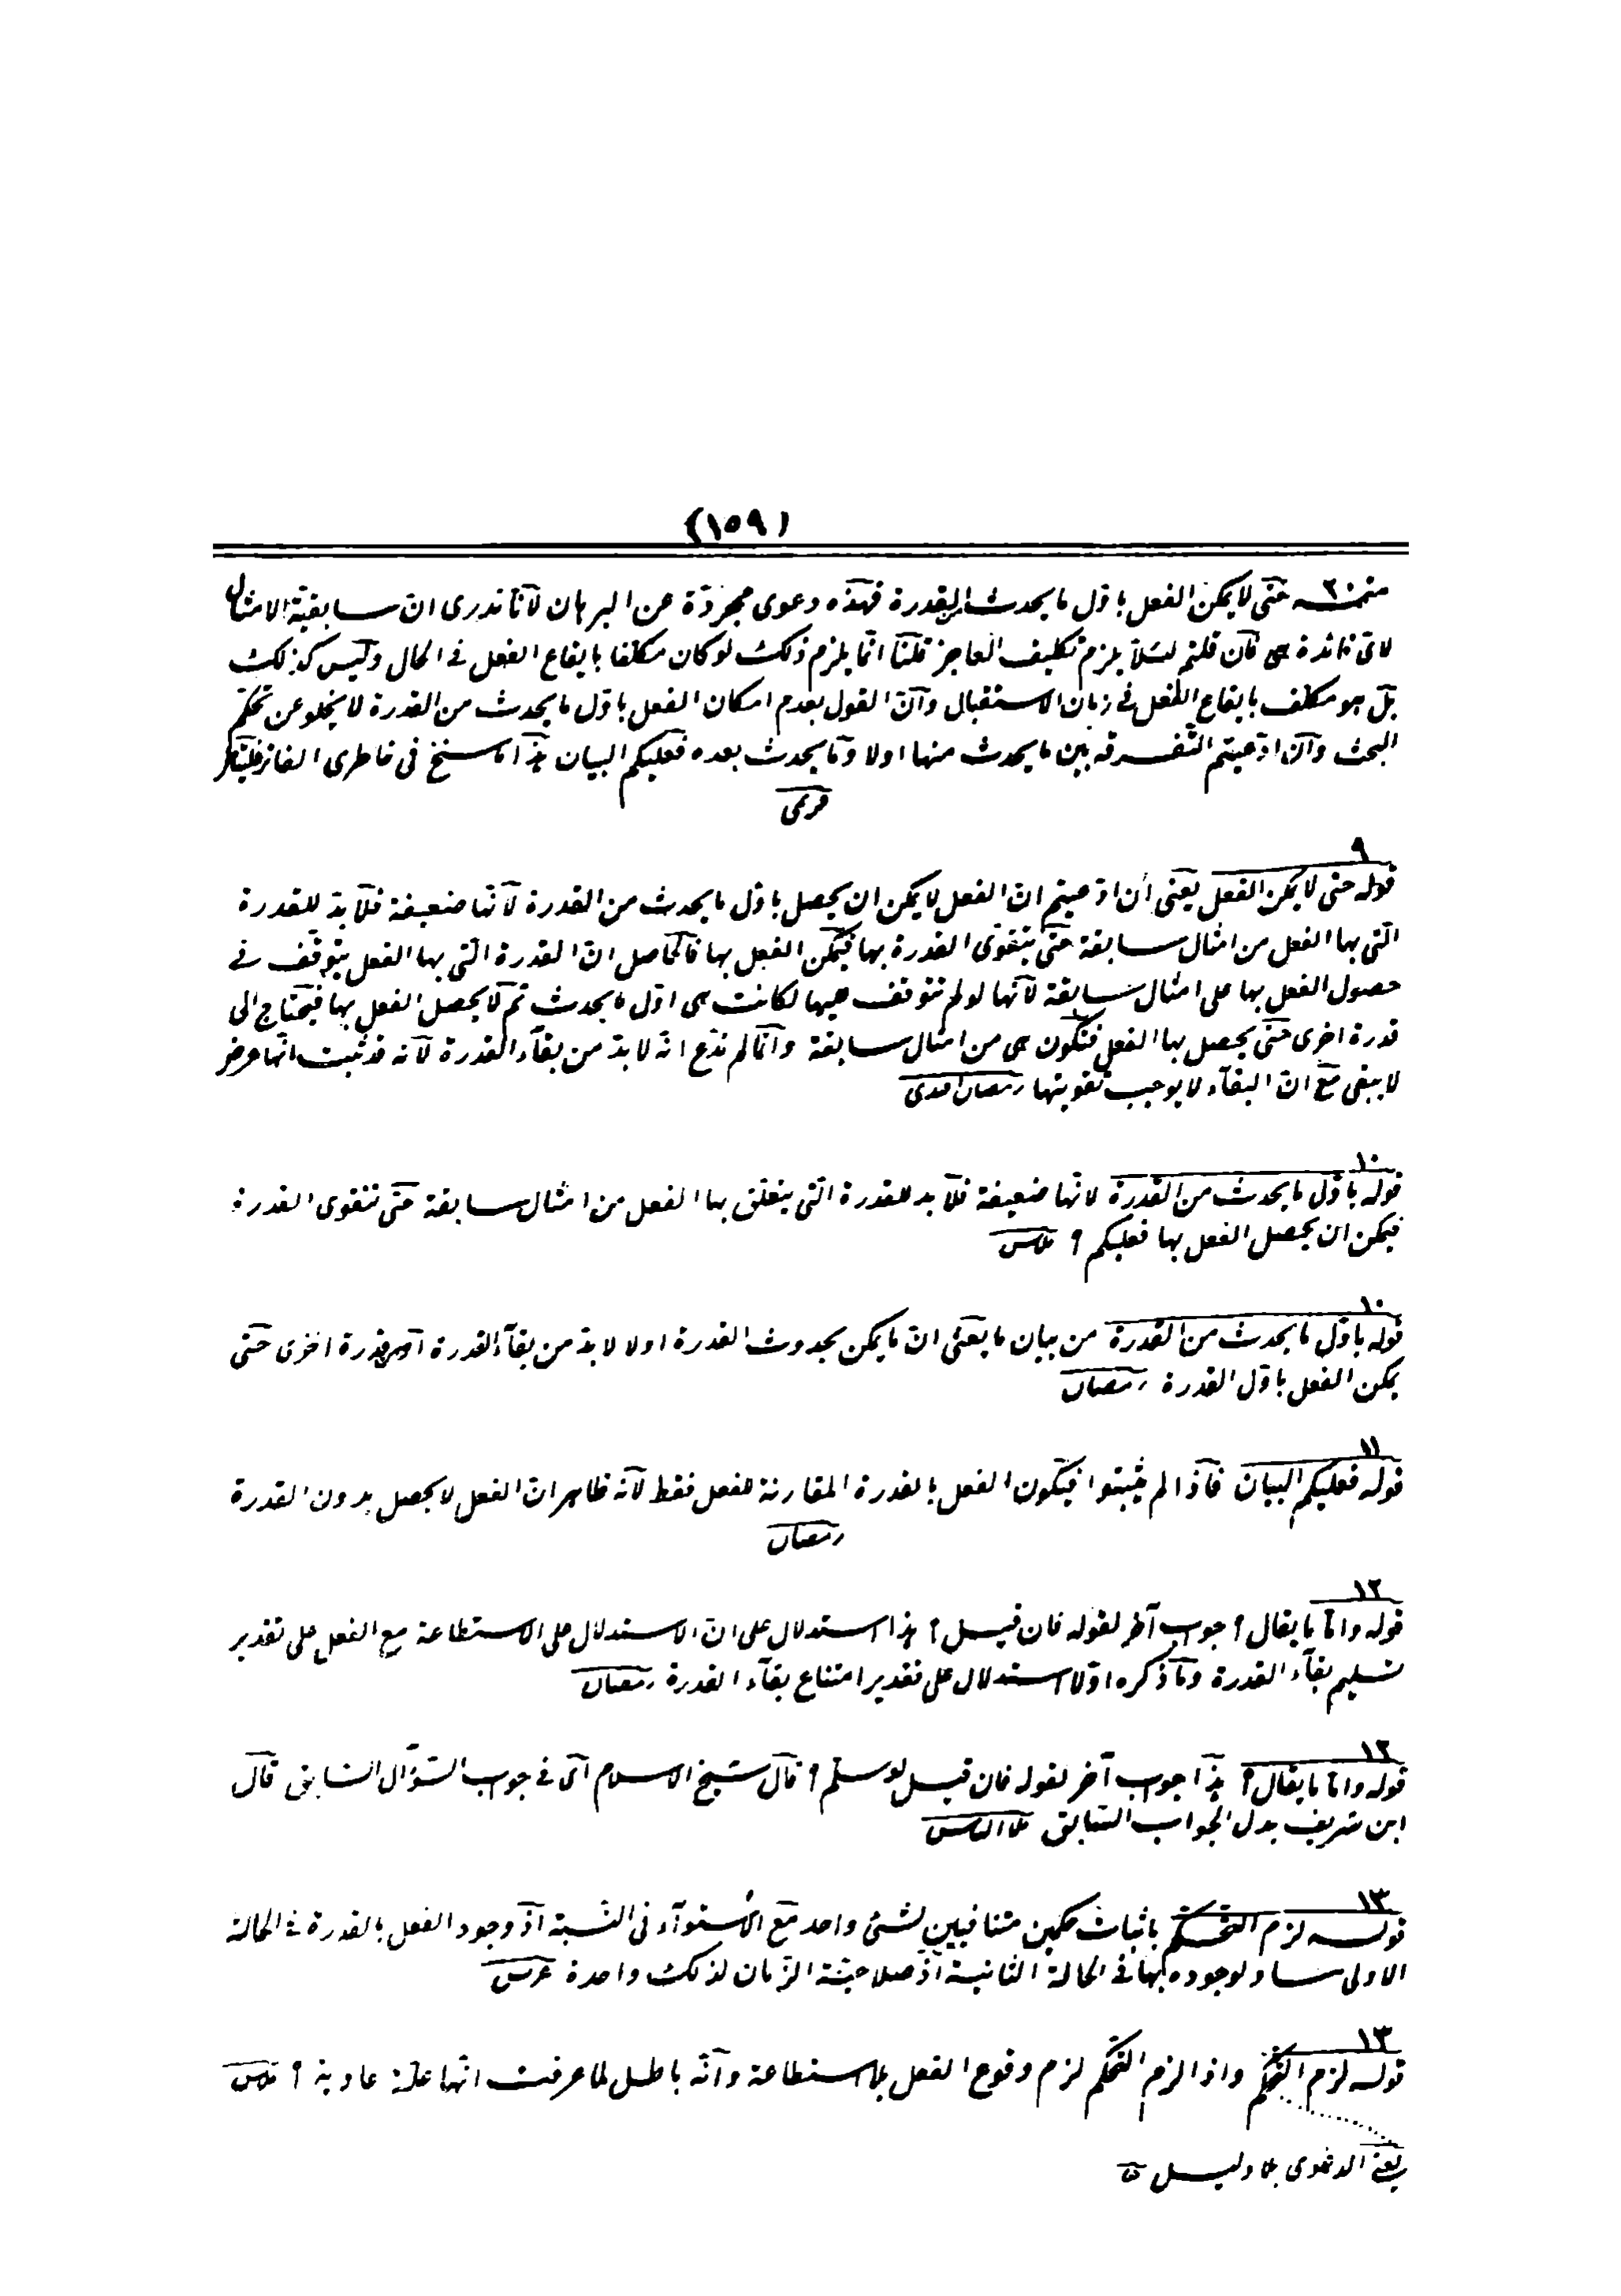 (١٥٩)
حتى لا يمكن الفعل باول ما يحدث القدرة فهذه دعوى مجردة عن البرهان لأنا ندرى ان سابقية الامثال
لاى فائدة هى فان قلتم لئلا يلزم تكليف العاجز قلنا انما يلزم ذلك لو كان مكلفا بايقاع الفعل فى الحال وليس كذلك
بل هو مكلف بايقاع الفعل فى زمان الاستقبال وان القول بعدم امكان الفعل باول ما يحدث من القدرة لا يخلو عن تحكم
البحث وان ادعيتم التفرقة بين ما يحدث منها اولا وما يحدث بعده فعليكم البيان هذا ما سنخ فى خاطرى الفاتر
قريمى
٩
قوله حتى لا يمكن الفعل يعنى ان ادعيتم ان الفعل لا يمكن ان يحصل باول ما يحدث من القدرة لأنها ضعيفة فلا بد للقدرة
التى بها الفعل من امثال سابقة حتى يتقوى القدرة بها فيمكن الفعل بها فالحاصل ان القدرة التى بها الفعل يتوقف فى
حصول الفعل بها على امثال سابقة لأنها لو لم تتوقف عليها لكانت هى اول ما يحدث ثم لا يحصل الفعل بها فيحتاج الى
قدرة اخرى حتى يحصل بها الفعل فتكون هى من امثال سابقة وانما لم ندع انه لا بد من بقاء القدرة لأنه قد ثبت انها عرض
لا يبقى مع ان البقاء لا يوجب تقويتها رمضان افندى
١٠
قوله باول ما يحدث من القدرة لانها ضعيفة فلا بد للقدرة التى يتعلق بها الفعل من امثال سابقة حتى تتقوى القدرة
فيمكن ان يحصل الفعل بها فعليكم ؟
١٠
قوله باول ما يحدث من القدرة من بيان ما يعنى ان ما يمكن بحدوث القدرة اولا لا بد من بقاء القدرة قدرة اخرى حتى
يمكن الفعل باول القدرة رمضان
١١
قوله فعليكم البيان فاذا لم يثبتوا فيكون الفعل بالقدرة المقارنة للفعل فقط لأنه ظاهر ان الفعل لا يحصل بدون القدرة
رمضان
١٢
قوله واما ما يقال ؟ جواب آخر لقوله فان قيل ؟ هذا استدلال على ان الاستدلال على الاستطاعة مع الفعل على تقدير
تسليم بقاء القدرة وما ذكره اولا استدلال على تقدير امتناع بقاء القدرة رمضان
١٢
قوله واما ما يقال ؟ هذا جواب آخر لقوله فان قيل لو سلم ؟ قال شيخ الاسلام اى فى جواب السؤال السابق قال
ابن شريف بدل الجواب السابق ملا الياس
١٣
قوله لزم التحكم باثبات حكمين متنافيين لشئ واحد مع الاستواء فى النسبة اذ وجود الفعل بالقدرة فى الحالة
الاولى مساو لوجوده بها فى الحالة الثانية اذ صلاحية الزمان لذلك واحدة عرس
١٣
قوله لزم التحكم واذا لزم التحكم لزم وقوع الفعل بلا استطاعة وانه باطل لما عرفت انها علة عادية ؟
يعنى الدعوى بلا دليل